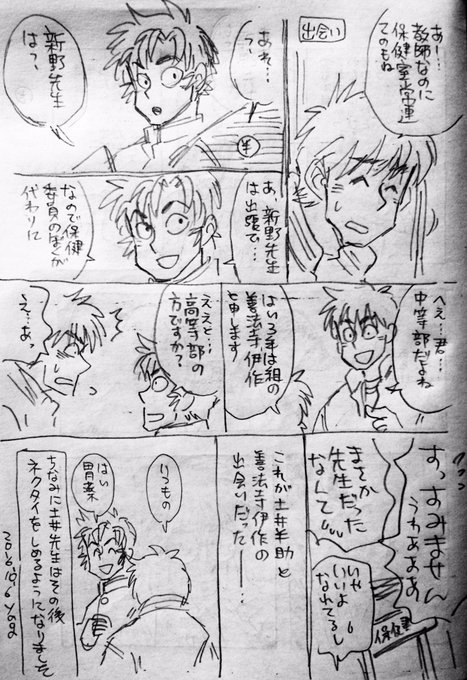 出会い
あー…
教師なのに
保健室常連
てのもね
あれ…
て、
新野先生
は?、
あ、新野先生
は出張で…
なので保健
委員のぼくが
代わりに
へぇ…君…
中等部だよね
はい3年は組の
善法寺伊作
と申します
ええと…
高等部の
方ですか?
え…あっ
すっすみません
うわぁああ
まさか
先生だった
なんて
いや
いいよ
なれてるし
保健
これが土井半助と
善法寺伊作の
出会いだった――
いつもの
はい
胃薬
ちなみに土井先生はその後
ネクタイをしめるようになりました